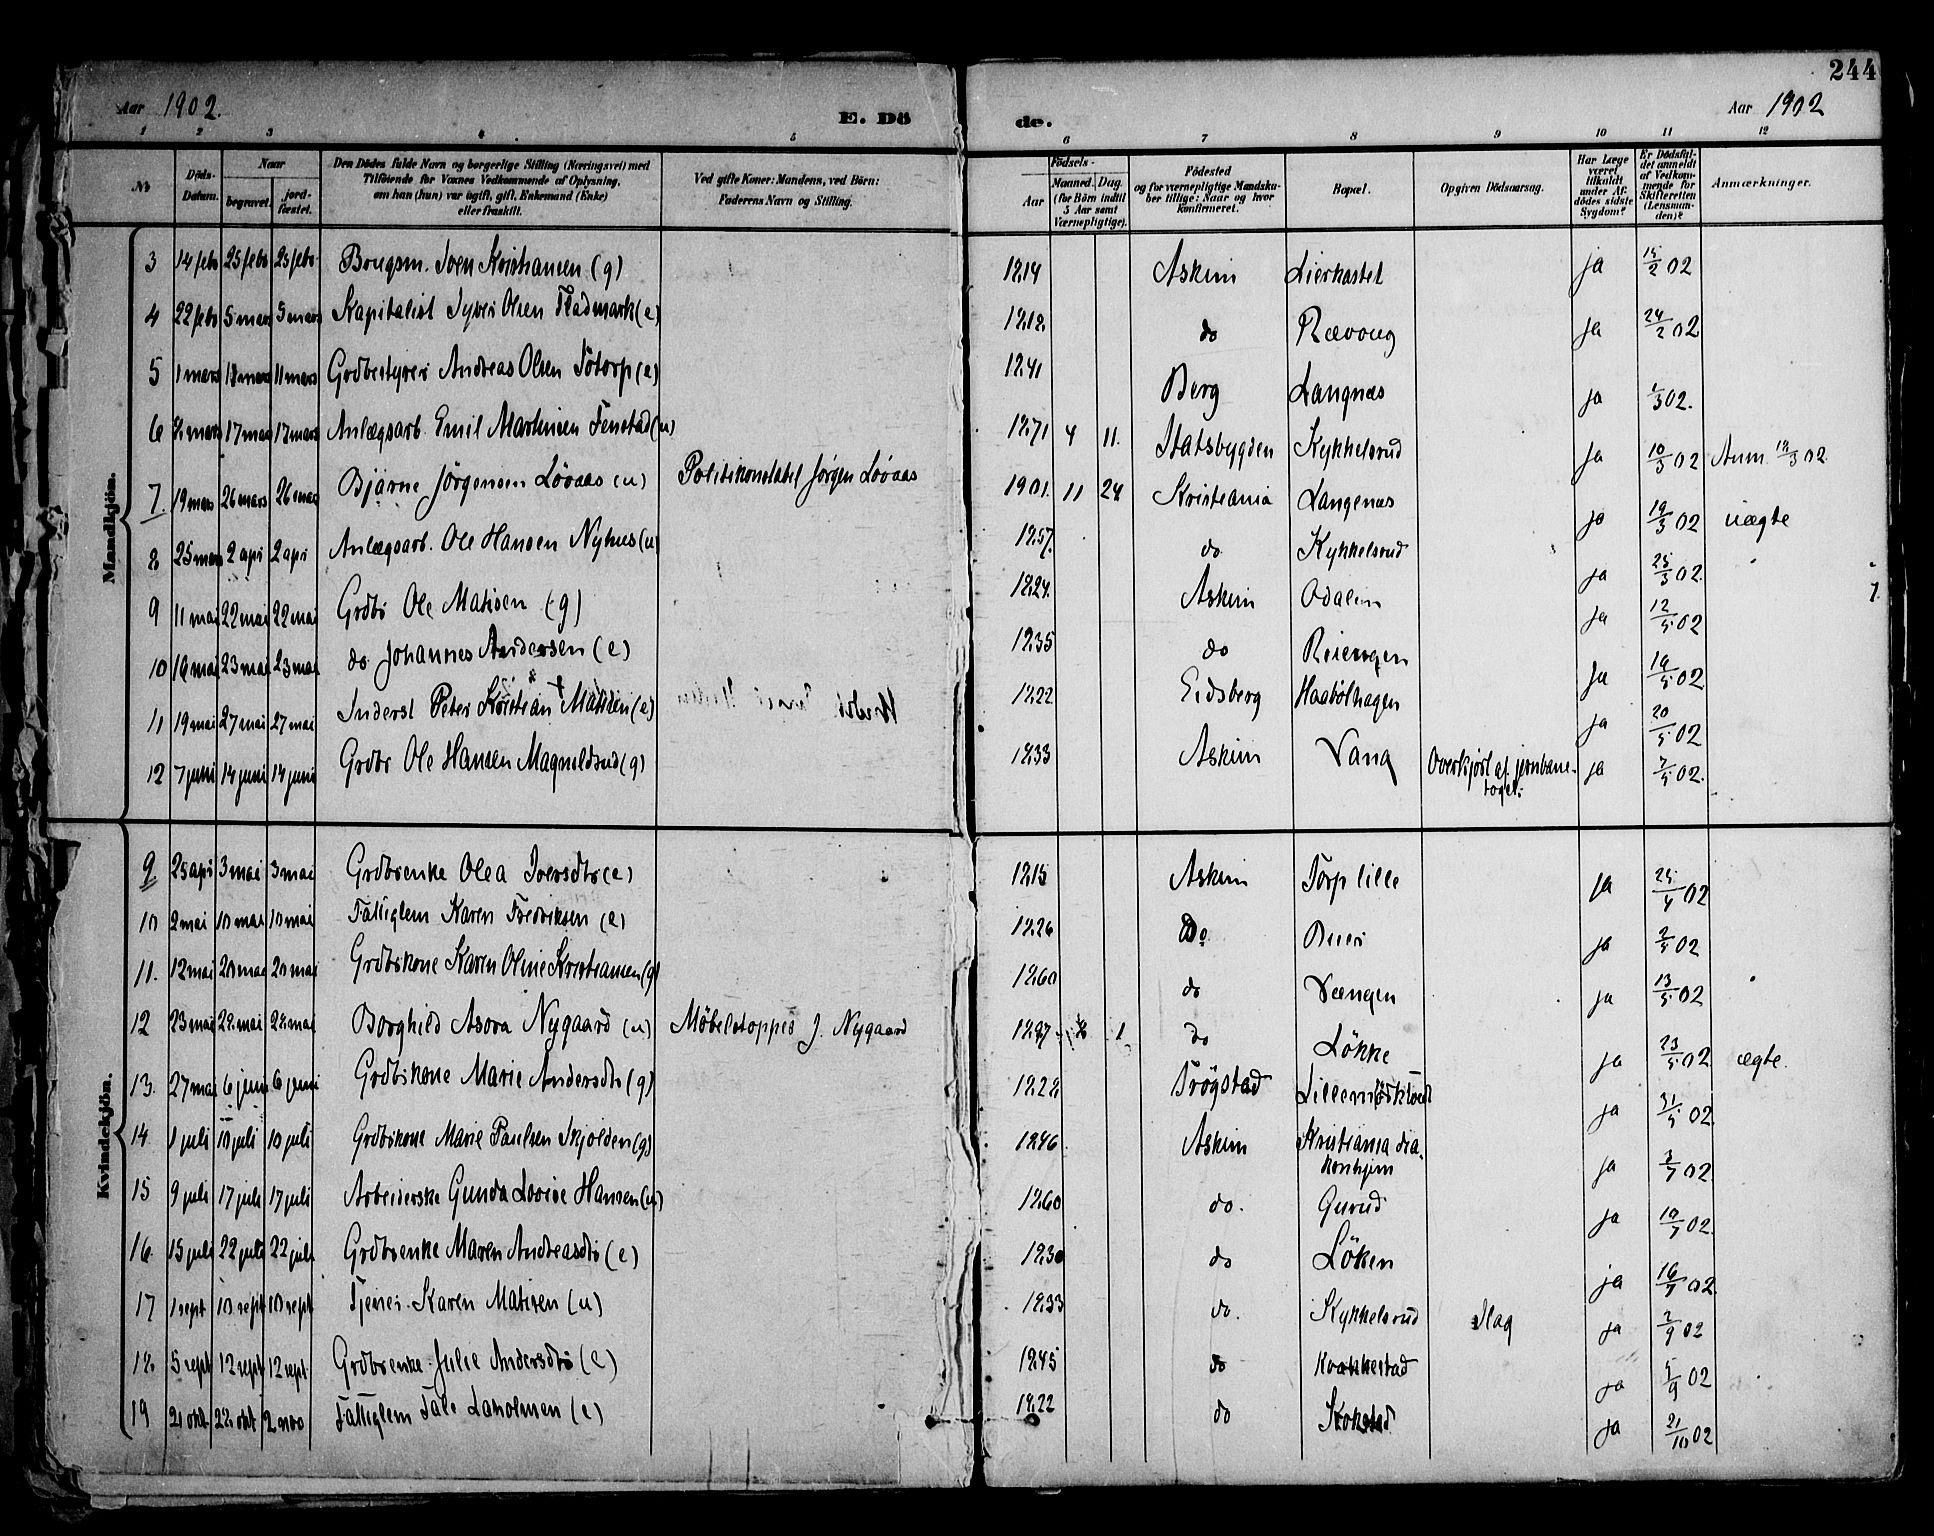 244
Aar 1902.
E. Dö
de.
Aar 1902
1 2 3 4 5 6 7 8 9 10 11 12
№
Döds-Datum.
Naar
begravet.
jord-fæstet.
Den Dödes fulde Navn og borgerlige Stilling (Næringsvei) med
Tilföiende for Voxnes Vedkommende af Oplysning,
om han (hun) var ugift, gift, Enkemand (Enke)
eller fraskilt.
Ved gifte Koner: Mandens, ved Börn:
Faderens Navn og Stilling.
Födsels-
Aar
Maaned. Dag.
(for Börn indtil
5 Aar samt
Værnepligtige).
Födested
og for værnepligtige Mandskaber tillige: Naar og hvor
konfirmeret.
Bopæl.
Opgiven Dödsaarsag.
Har Læge
været
tilkaldt
under Afdödes sidste
Sygdom?
Er Dödsfaldet anmeldt
af Vedkommende for
Skifteretten
(Lensmanden)?
Anmærkninger.
Mandkjön.
3 14 feb 25 feb 25 feb Brugsm. Iven Kristiansen (g) 1814 Askim Lierkastet ja 15/2 02
4 22 feb 5 mars 5 mars Kapitalist Syver Olsen Fladmark (e) 1812 do Rævoug ja 24/2 02
5 1 mars 11 mars 11 mars Grdbestyrer Andreas Olsen Tötorp (e) 1841 Berg Langnæs ja 1/3 02.
6 8 mars 17 mars 17 mars Anlægsarb. Emil Martinsen Fenstad (u) 1871 4 11. Statsbygden Kykkelsrud ja 10/3 02 Anm. 18/3 02.
7. 19 mars 26 mars 26 mars Bjarne Jörgensen Lövaas (u) Politikonstabel Jörgen Lövaas 1901. 11 24 Kristiania Langenæs ja 19/3 02 uægte
8 25 mars 2 apr 2 apr Anlægsarb. Ole Hansen Nyhus (u) 1857. do Kykkelsrud ja 25/3 02.
9 11 mai 22 mai 22 mai Grdbr Ole Matisen (g) 1824. Askim Odalen ja 12/5 02
10 16 mai 23 mai 23 mai do Johannes Andersen (e) 1835 do ja 16/5 02
11 19 mai 27 mai 27 mai Inderst Peter Kristian Matisen (e) 1822 Eidsberg Haabölhagen ja 20/5 02
12 7 juni 14 juni 14 juni Grdbr Ole Hansen Magneldsrud (g) 1833 Askim Vang Overkjört af jernbane-
toget. ja 7/5 02.
Kvindekjön.
9 25 apr 3 mai 3 mai Grdbrenke Olea Iversdtr (e) 1815 Askim Torp lille ja 25/4 02
10 2 mai 10 mai 10 mai Fattiglem Karen Fredriksen (e) 1826 Do. Buer ja 2/5 02
11. 12 mai 20 mai 20 mai Grdbrkone Karen Oline Kristiansen (g) 1860 do Vængen ja 13/5 02
12 23 mai 28 mai 28 mai Borghild Asora Nygaard (u) Möbelstopper J. Nygaard 1897 1 do Lökke ja 23/5 02 ægte.
13. 27 mai 6 juni 6 juni Grdbrkone Marie Andersdtr (g) 1828 Trögstad ja 31/5 02.
14 1 juli 10 juli 10 juli Grdbrkone Marie Paulsen Skjolden (g) 1846 Askim Kristiania dia-
konhjem ja 3/7 02.
15 9 juli 17 juli 17 juli Arbeiderske Gunda Lovise Hansen (u) 1860 do. Gurud ja 10/7 02.
16 15 juli 22 juli 22 juli Grdbrenke Maren Andreasdtr (e) 1830 do Löken ja 16/7 02.
17 1 sept 10 sept 10 sept Tjener. Karen Matisen (u) 1833 do. Kykkelsrud Slag ja 2/9 02
18. 5 sept 12 sept 12 sept Grdbrenke Julie Andersdtr (e) 1845 do ja 5/9 02
19 21 okt 28 okt 2 nov Fattiglem Tale (e) 1822 do Kokstad ja 21/10 02